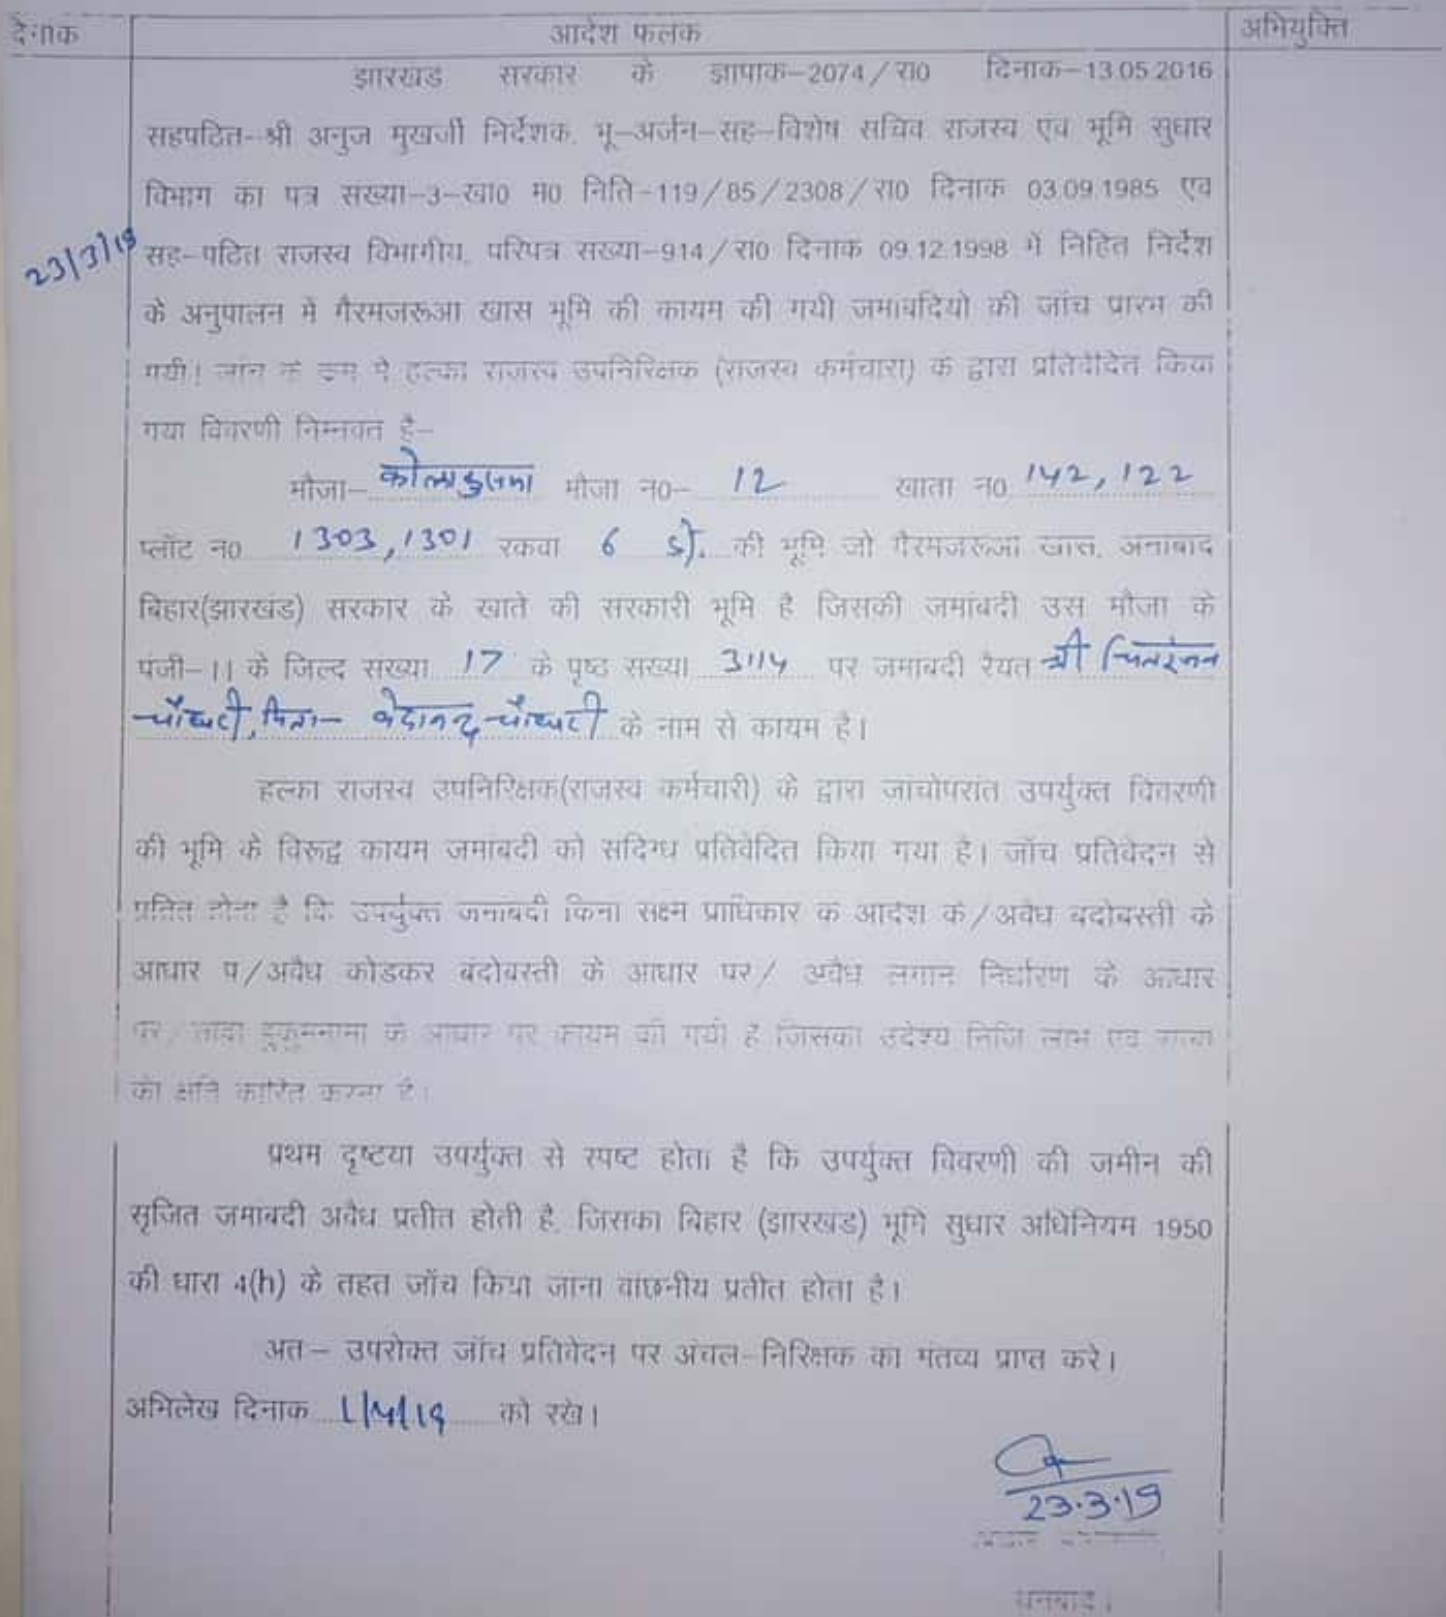 दिनाक आदेश फलक अभियुक्ति
झारखंड सरकार के ज्ञापाक-2074/रा0 दिनाक-13.05.2016
सहपठित-श्री अनुज मुखर्जी निर्देशक. भू-अर्जन-सह-विशेष सचिव राजस्व एंव भूमि सुधार
विभाग का पत्र सख्या-3-खा0 म0 निति-119/85/2308/रा0 दिनाक 03.09.1985 एव
23/3/19 सह-पठित राजस्व विभागीय, परिपत्र सख्या-914/रा0 दिनाक 09.12.1998 में निहित निर्देश
के अनुपालन में गैरमजरूआ खास भूमि की कायम की गयी जमाबदियो की जॉच प्रारभ की
गयी। जांच के क्रम मे हल्का राजस्व उपनिरिक्षक (राजस्व कर्मचारी) के द्वारा प्रतिवेदित किया
गया विवरणी निम्नवत है-
मौजा- मौजा न0- 12 खाता न0 142, 122
प्लॉट न0 1303,1301 रकवा 6 डी. की भूमि जो गैरमजरूआ खास, अनाबाद
बिहार(झारखंड) सरकार के खाते की सरकारी भूमि है जिसकी जमांबदी उस मौजा के
पंजी-11 के जिल्द सख्या 17 के पृष्ठ सख्या 3114 पर जमांबदी रैयत श्री चितरंजन
चौधरी, पिता- वेदानन्द चौधरी के नाम से कायम है।
हल्का राजस्व उपनिरिक्षक(राजस्व कर्मचारी) के द्वारा जांचोपरांत उपर्युक्त विवरणी
की भूमि के विरूद्व कायम जमांबदी को सदिग्ध प्रतिवेदित किया गया है। जॉच प्रतिवेदन से
प्रतित होता है कि उपर्युक्त जमाबंदी बिना सक्ष्म प्राधिकार के आदेश के/अवैध बदोबस्ती के
आधार प/अवैध कोडकर बंदोबस्ती के आधार पर/ अवैध लगान निर्धारण के आधार
पर/सादा हुकुमनामा के आधार पर कायम की गयी है जिसका उदेश्य निजि लाभ एव
को क्षति कारित करना है।
प्रथम दृष्टया उपर्युक्त से स्पष्ट होता है कि उपर्युक्त विवरणी की जमीन की
सृजित जमाबदी अवैध प्रतीत होती है, जिसका बिहार (झारखड) भूमि सुधार अधिनियम 1950
की धारा 4(h) के तहत जॉच किया जाना वांछनीय प्रतीत होता है।
अत- उपरोक्त जॉच प्रतिवेदन पर अंचल-निरिक्षक का मंतव्य प्राप्त करे।
अभिलेख दिनाक 1/4/19 को रखे।
23.3.19
धनबाद।